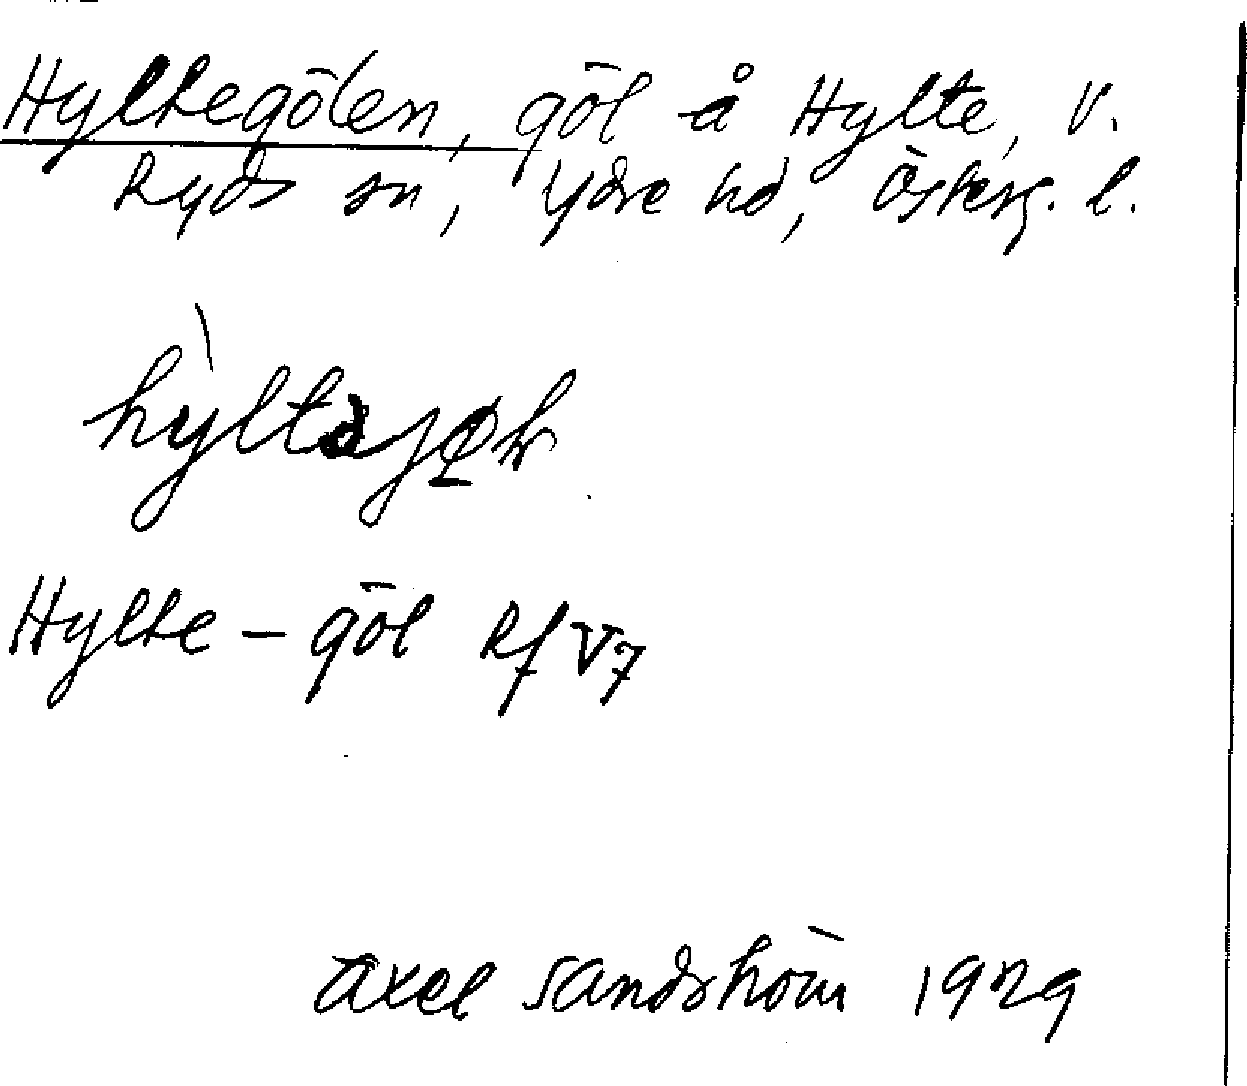 Hyltegölen, göl å Hylte, V.
Ryds sn, Ydre hd, Österg. l.
Hylte – göl Rf V7
Axel Sandström 1929